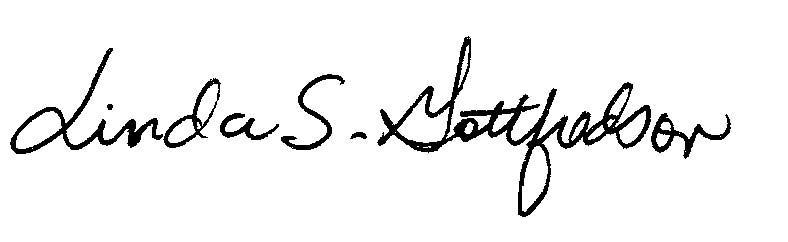 Linda S. Gottfredson